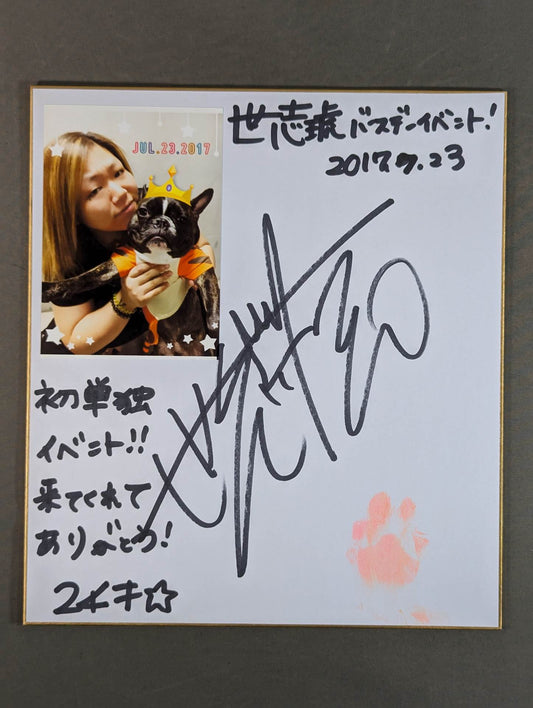 JUL.23.2017
世志琥バースデーイベント!
2017.7.23
初単独
イベント!!
来てくれて
ありがとう!